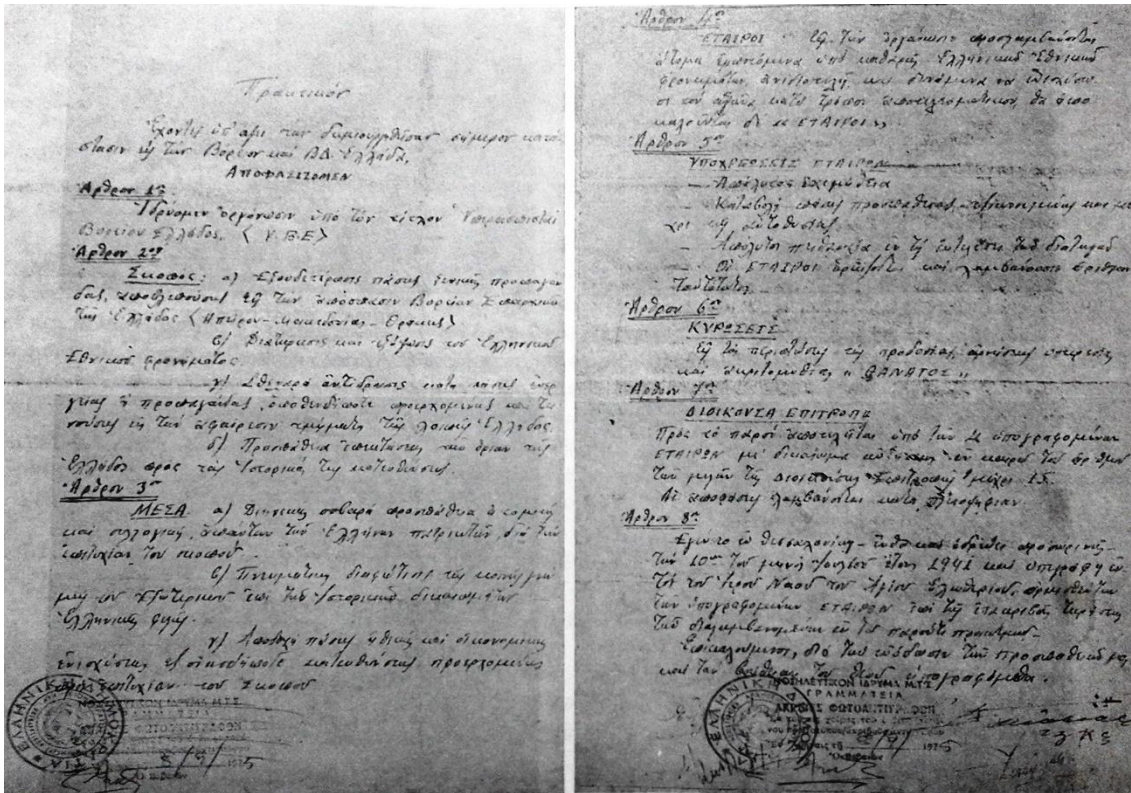 Πρακτικόν
Ἔχοντες ὑπ' ὄψει τὴν δημιουργηθεῖσαν σήμερον κατά-
στασιν εἰς τὴν Βόρειον καὶ ΒΔ. Ἑλλάδα,
ΑΠΟΦΑΣΙΖΟΜΕΝ
Ἄρθρον 1ον
Ἱδρύομεν ὀργάνωσιν ὑπὸ τὸν τίτλον Ὑπερασπισταὶ
Βορείου Ἑλλάδος. (Υ.Β.Ε)
Ἄρθρον 2ον
Σκοπός: α) Ἐξουδετέρωσις πάσης ξενικῆς προπαγάν-
δας, ἀποβλεπούσης εἰς τὴν ἀπόσπασιν Βορείων Ἐπαρχιῶν
τῆς Ἑλλάδος (Ἠπείρου - Μακεδονίας - Θράκης)
β) Διατήρησις καὶ ἐξύψωσις τοῦ Ἑλληνικοῦ
Ἐθνικοῦ φρονήματος
γ) Σθεναρὰ ἀντίδρασις κατὰ πάσης ἐνερ-
γείας ἢ προπαγάνδας, ὁποθενδήποτε προερχομένης καὶ τει-
νούσης εἰς τὴν ἀφαίρεσιν τμήματος τῆς λοιπῆς Ἑλλάδος.
δ) Προσπάθεια ἐπεκτάσεως τῶν ὁρίων τῆς
Ἑλλάδος πρὸς τὰς Ἱστορικάς της κατευθύνσεις.
Ἄρθρον 3ον
ΜΕΣΑ. α) Διηνεκὴς σοβαρὰ προσπάθεια ἀτομικὴ
καὶ συλλογικὴ ἁπάντων τῶν Ἑλλήνων πατριωτῶν, διὰ τὴν
ἐπιτυχίαν τοῦ σκοποῦ.
β) Πνευματικὴ διαφώτισις τῆς κοινῆς γνώ-
μης τοῦ ἐξωτερικοῦ ἐπὶ τῶν Ἱστορικῶν δικαιωμάτων
Ἑλληνικῆς φυλῆς.
γ) Ἀποδοχὴ πάσης ἠθικῆς καὶ οἰκονομικῆς
ἐνισχύσεως ἐξ οἱασδήποτε κατευθύνσεως προερχομένης
ἐπιτυχίαν τοῦ Σκοποῦ
ΝΟΣΗΛΕΥΤΙΚΟΝ ΙΔΡΥΜΑ Μ.Τ.Σ.
ΓΡΑΜΜΑΤΕΙΑ
ΕΛΛΗΝΙΚΗ ΔΗΜΟΚΡΑΤΙΑ
1975
Ἄρθρον 4ον
ΕΤΑΙΡΟΙ: Εἰς τὴν ὀργάνωσιν προσλαμβάνονται
ἄτομα ἐμπνεόμενα ὑπὸ καθαρῶς Ἑλληνικοῦ Ἐθνικοῦ
φρονήματος, ἀνιδιοτελῆ καὶ δυνάμενα νὰ ἐνισχύσω-
σι τὸν ἀγῶνα κατὰ τρόπον ἀποτελεσματικόν, θὰ ἀπο-
καλοῦνται δὲ «ΕΤΑΙΡΟΙ».
Ἄρθρον 5ον
ΥΠΟΧΡΕΩΣΕΙΣ ΕΤΑΙΡΩΝ
- Ἀπόλυτος ἐχεμύθεια
- Καταβολὴ πάσης προσπαθείας καὶ μέ-
χρι τῆς αὐτοθυσίας.
- Ἀπόλυτος πειθαρχία ἐν τῇ ἐκτελέσει τῶν διαταγῶν
- Οἱ ΕΤΑΙΡΟΙ ὁρκίζονται καὶ λαμβάνουσι ἀριθμὸν
ταυτότητος.
Ἄρθρον 6ον
ΚΥΡΩΣΕΙΣ
Εἰς τὰς περιπτώσεις τῆς προδοσίας, ἀρνήσεως ὑπηρεσίας
καὶ ἀκριτομυθίας «ΘΑΝΑΤΟΣ»
Ἄρθρον 7ον
ΔΙΟΙΚΟΥΣΑ ΕΠΙΤΡΟΠΗ
Πρὸς τὸ παρὸν ἀποτελεῖται ὑπὸ τῶν ὑπογραφομένων
ΕΤΑΙΡΩΝ μὲ δικαίωμα αὐξήσεως ἐν καιρῷ τοῦ ἀριθμοῦ
τῶν μελῶν τῆς Διοικούσης Ἐπιτροπῆς μέχρι 15.
Αἱ ἀποφάσεις λαμβάνονται κατὰ πλειοψηφίαν.
Ἄρθρον 8ον
Ἐγένετο ἐν Θεσσαλονίκῃ - ἔνθα καὶ ἑδρεύει προσωρινῶς -
τὴν 10ην τοῦ μηνὸς Ἰουλίου ἔτους 1941 καὶ ὑπεγράφη ἐν-
τὸς τοῦ Ἱεροῦ Ναοῦ τοῦ Ἁγίου Ἐλευθερίου, ὁρκισθέντων
τῶν ὑπογραφομένων ΕΤΑΙΡΩΝ ἐπὶ τῆς ἐπακριβοῦς τηρήσεως
τῶν διαλαμβανομένων ἐν τῷ παρόντι πρακτικῷ.
Ἐπικαλούμενοι, διὰ τὴν εὐόδωσιν τῶν προσπαθειῶν μας
καὶ τὴν βοήθειαν τοῦ Θεοῦ ὑπογραφόμεθα.
ΝΟΣΗΛΕΥΤΙΚΟΝ ΙΔΡΥΜΑ Μ.Τ.Σ.
ΓΡΑΜΜΑΤΕΙΑ
ΑΚΡΙΒΕΣ ΦΩΤΟΑΝΤΙΓΡΑΦΟΝ
ΕΛΛΗΝΙΚΗ ΔΗΜΟΚΡΑΤΙΑ
1975